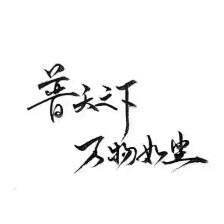 普天之下
万物如尘